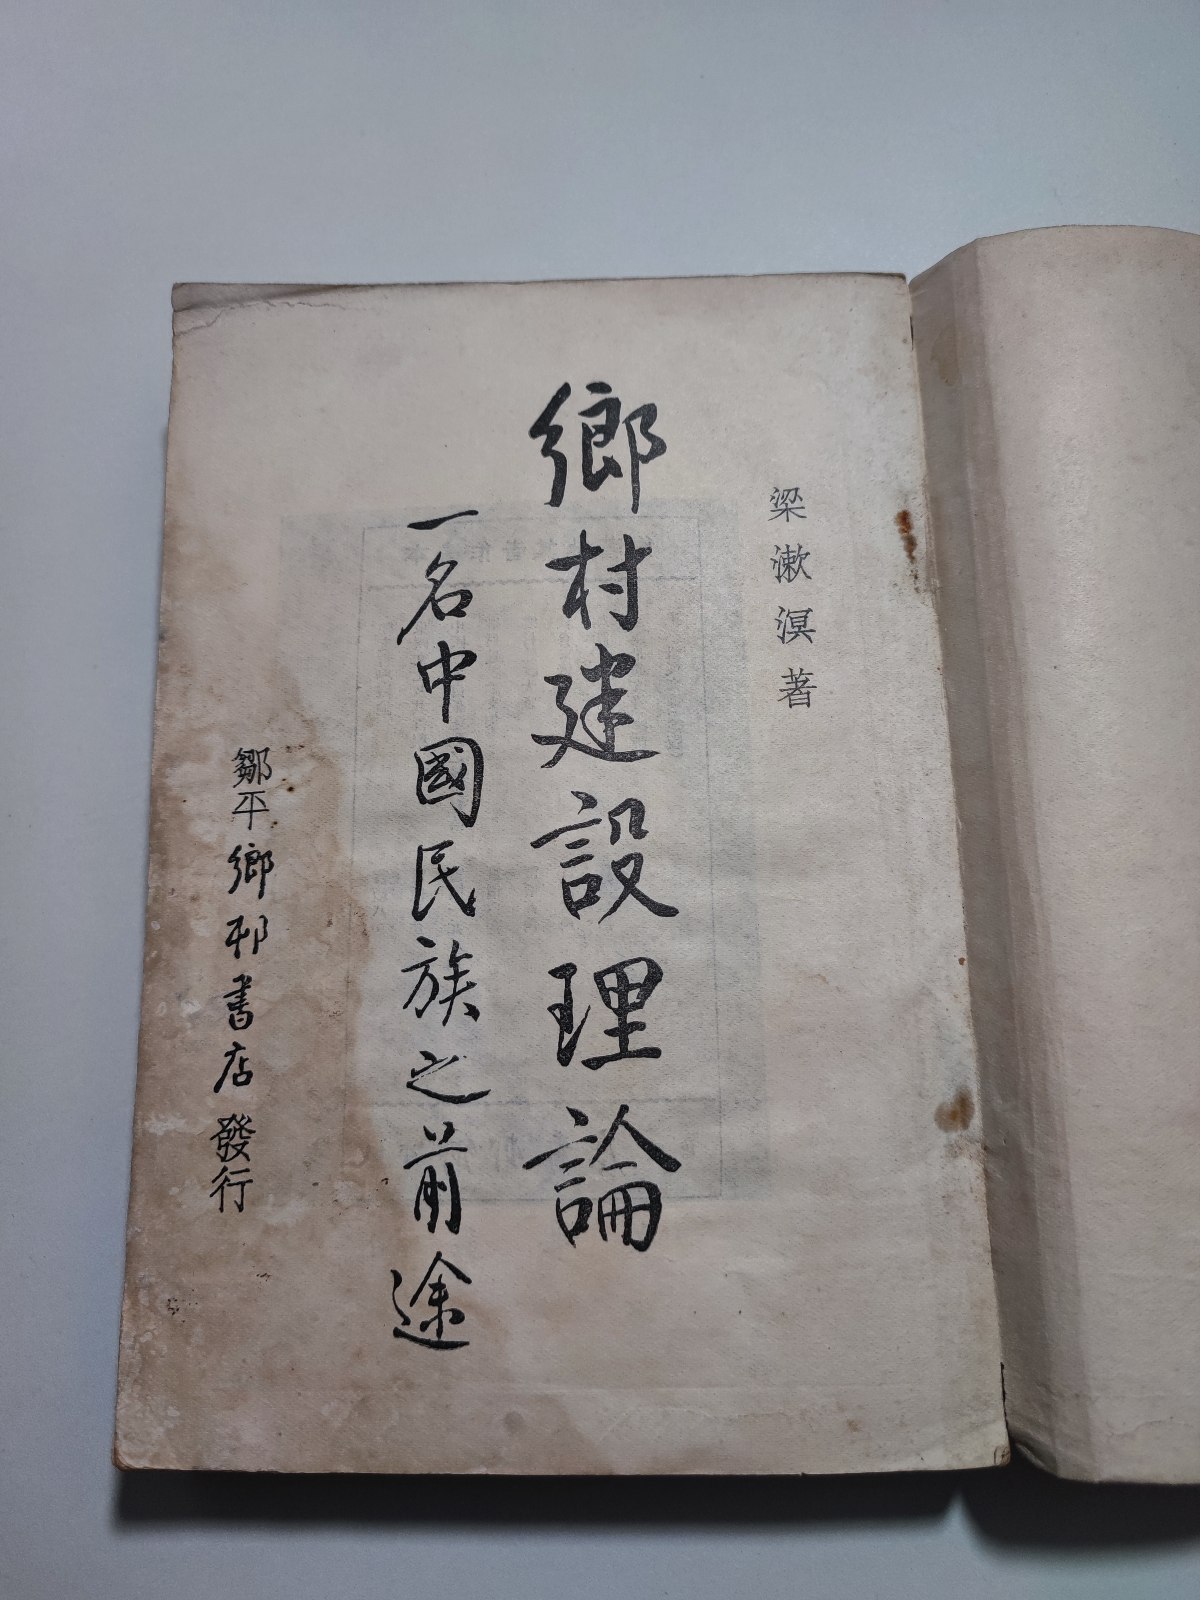 梁漱溟著
鄉村建設理論
一名中國民族之前途
鄒平鄉邨書店發行